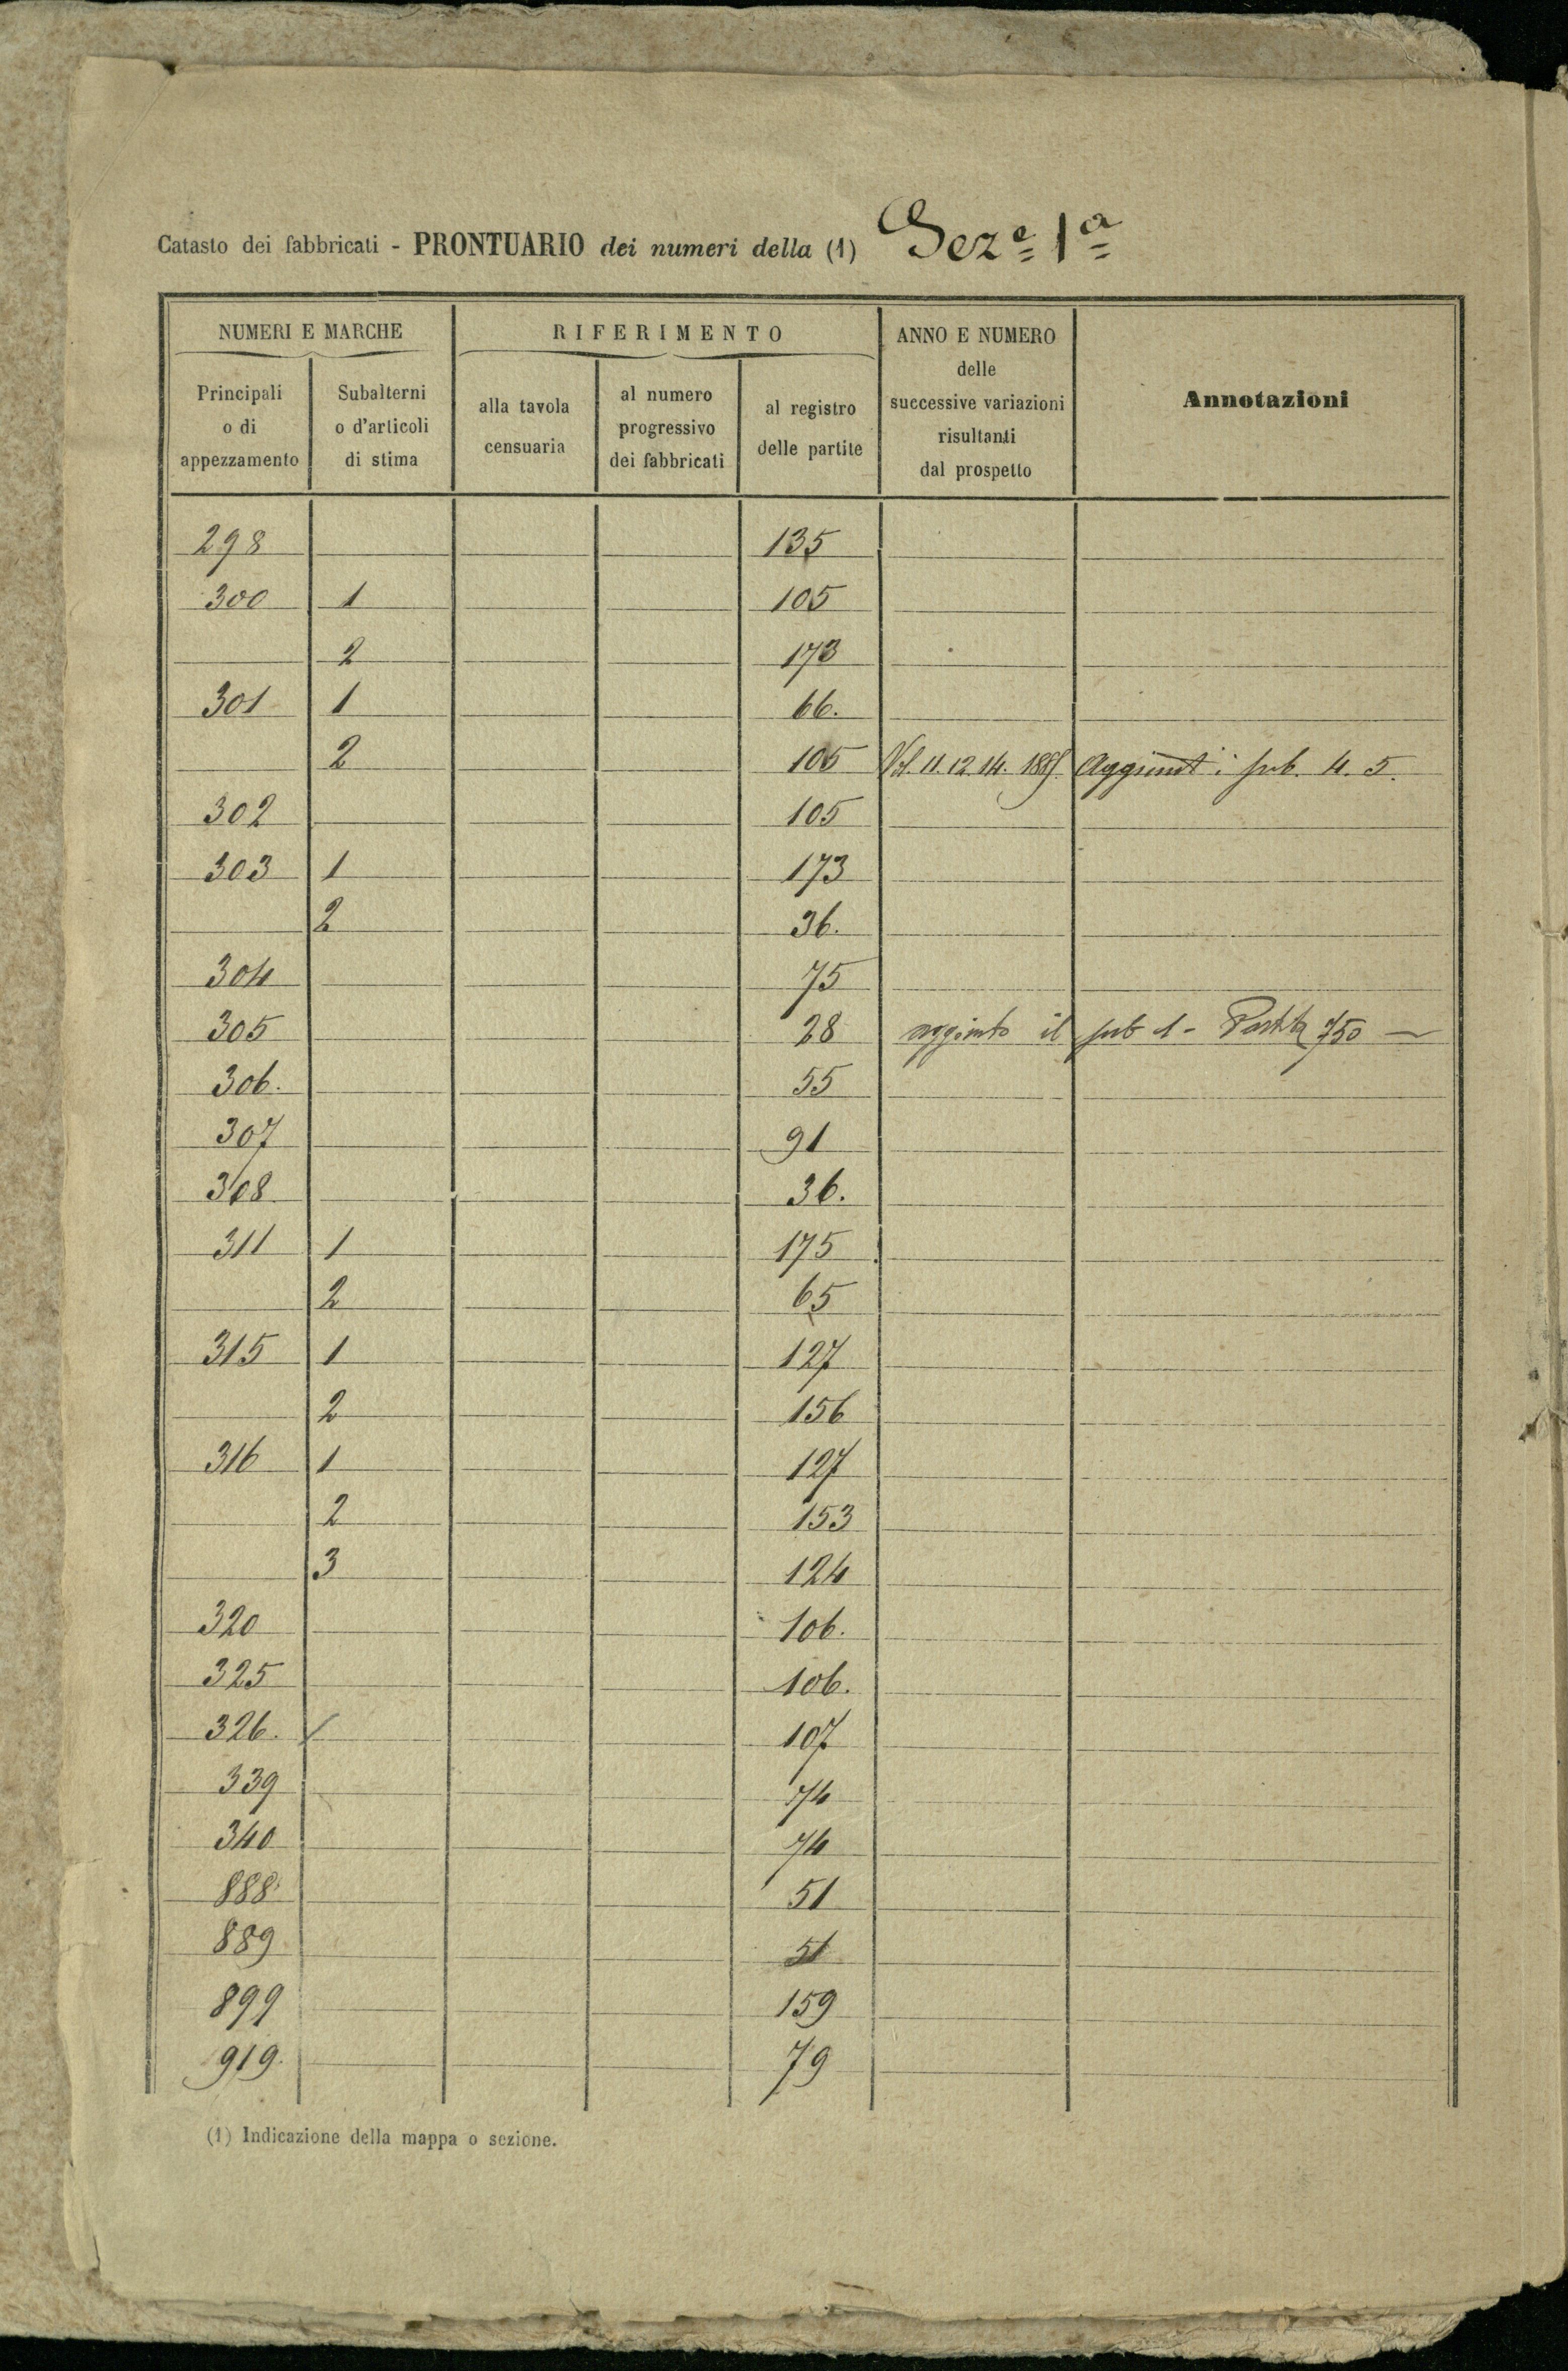 Catasto dei fabbricati - PRONTUARIO dei numeri della (1) Sez.e 1a
NUMERI E MARCHE RIFERIMENTO ANNO E NUMERO delle successive variazioni risultanti dal prospetto Annotazioni
Principali o di appezzamento Subalterni o d'articoli di stima alla tavola censuaria al numero progressivo dei fabbricati al registro delle partite
298 135
300 1 105
2 173
301 1 66.
2 105 Vol. 11. 12. 14. Aggiunt i sub. 4. 5.
302 105
303 1 173
2 36.
304 75
305 28 aggiunto il sub 1 - Partita 750 —
306. 55
307 91
308 36.
311 1 175
2 65
315 1 127
2 156
316 1 127
2 153
3 124
320 106.
325 106.
326. 107
339 74
340 74
888 51
889 51
899 159
919. 79
(1) Indicazione della mappa o sezione.